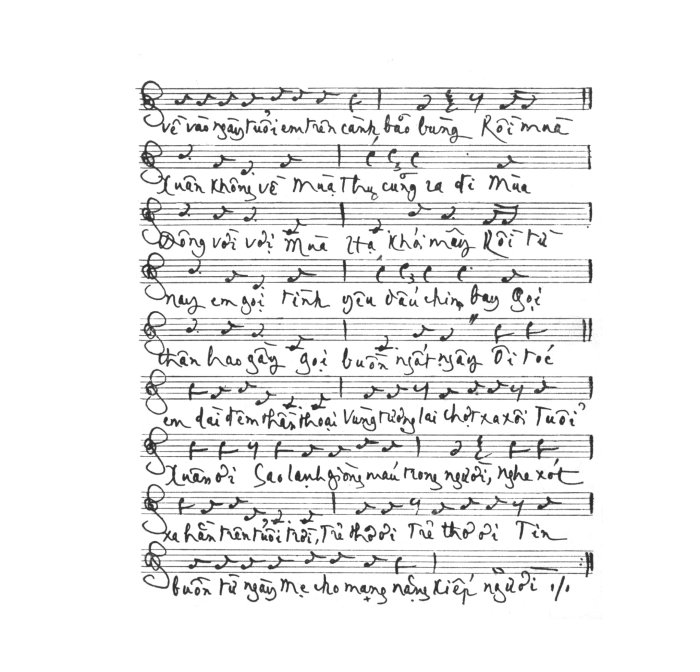 về vào ngày tuổi em trên cành bão bùng Rồi mùa
Xuân không về Mùa Thu cũng ra đi Mùa
Đông vời vợi Mùa Hạ khói mây Rồi từ
nay em gọi tình yêu dấu chim bay Gọi
thân hao gầy gọi buồn ngất ngây Ôi tóc
em dài đêm thần thoại Vùng tương lai chợt xa xôi Tuổi
Xuân ơi Sao lạnh giòng máu trong người, Nghe xót
xa hằn trên tuổi trời, Trẻ thơ ơi Trẻ thơ ơi Tin
buồn từ ngày Mẹ cho mang nặng Kiếp người ./.